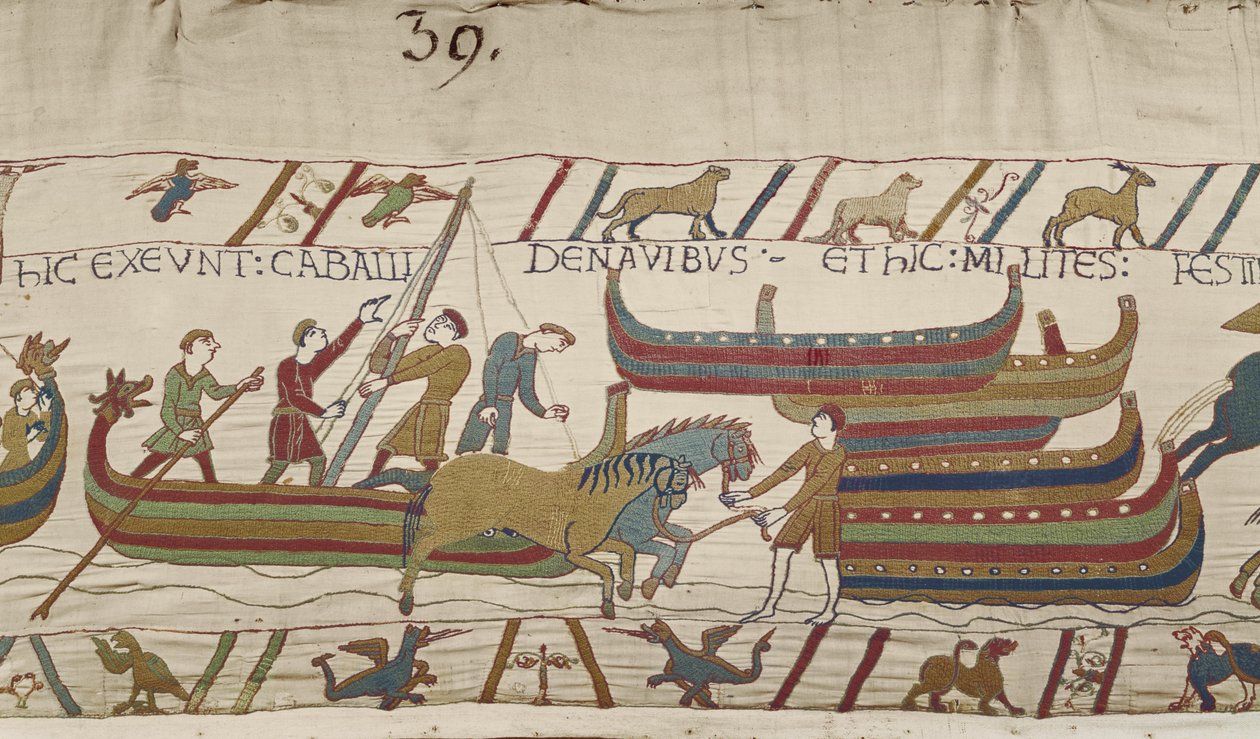 39.
hIC EXEVNT: CABALLI DENAVIBVS :- ET hIC: MILITES: FESTI